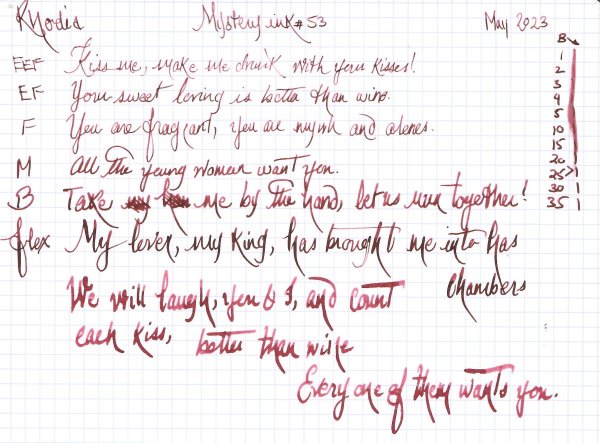 Rhodia Mystery ink #53 May 2023
EEF Kiss me, make me drunk with your kisses!
EF Your sweet loving is better than wine.
F You are fragrant, you are myrrh and aloes.
M All the young women want you.
B Take me by the hand, let us run together!
flex My lover, my King, has brought me into has
chambers
We will laugh, you & I, and count
each kiss, better than wine
Every one of them wants you.
B
1
2
3
4
5
10
15
20
25
30
35